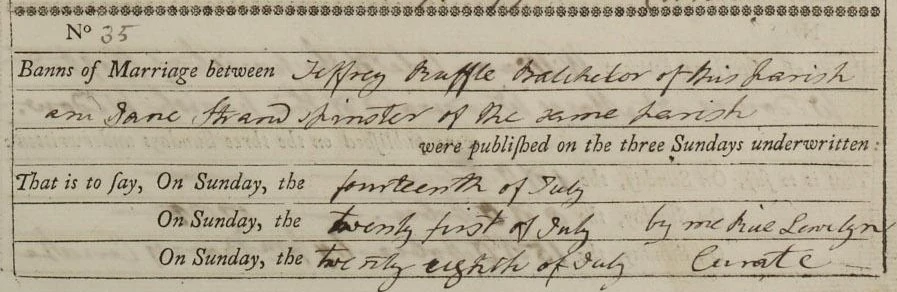 Nº 35
Banns of Marriage between Jeffrey Ruffle Batchelor of this Parish
and Jane Strand Spinster of the same parish
were publiſhed on the three Sundays underwritten:
That is to ſay, On Sunday, the fourteenth of July
On Sunday, the twenty first of July by me Lewelyn
On Sunday, the twenty eighth of July Curate